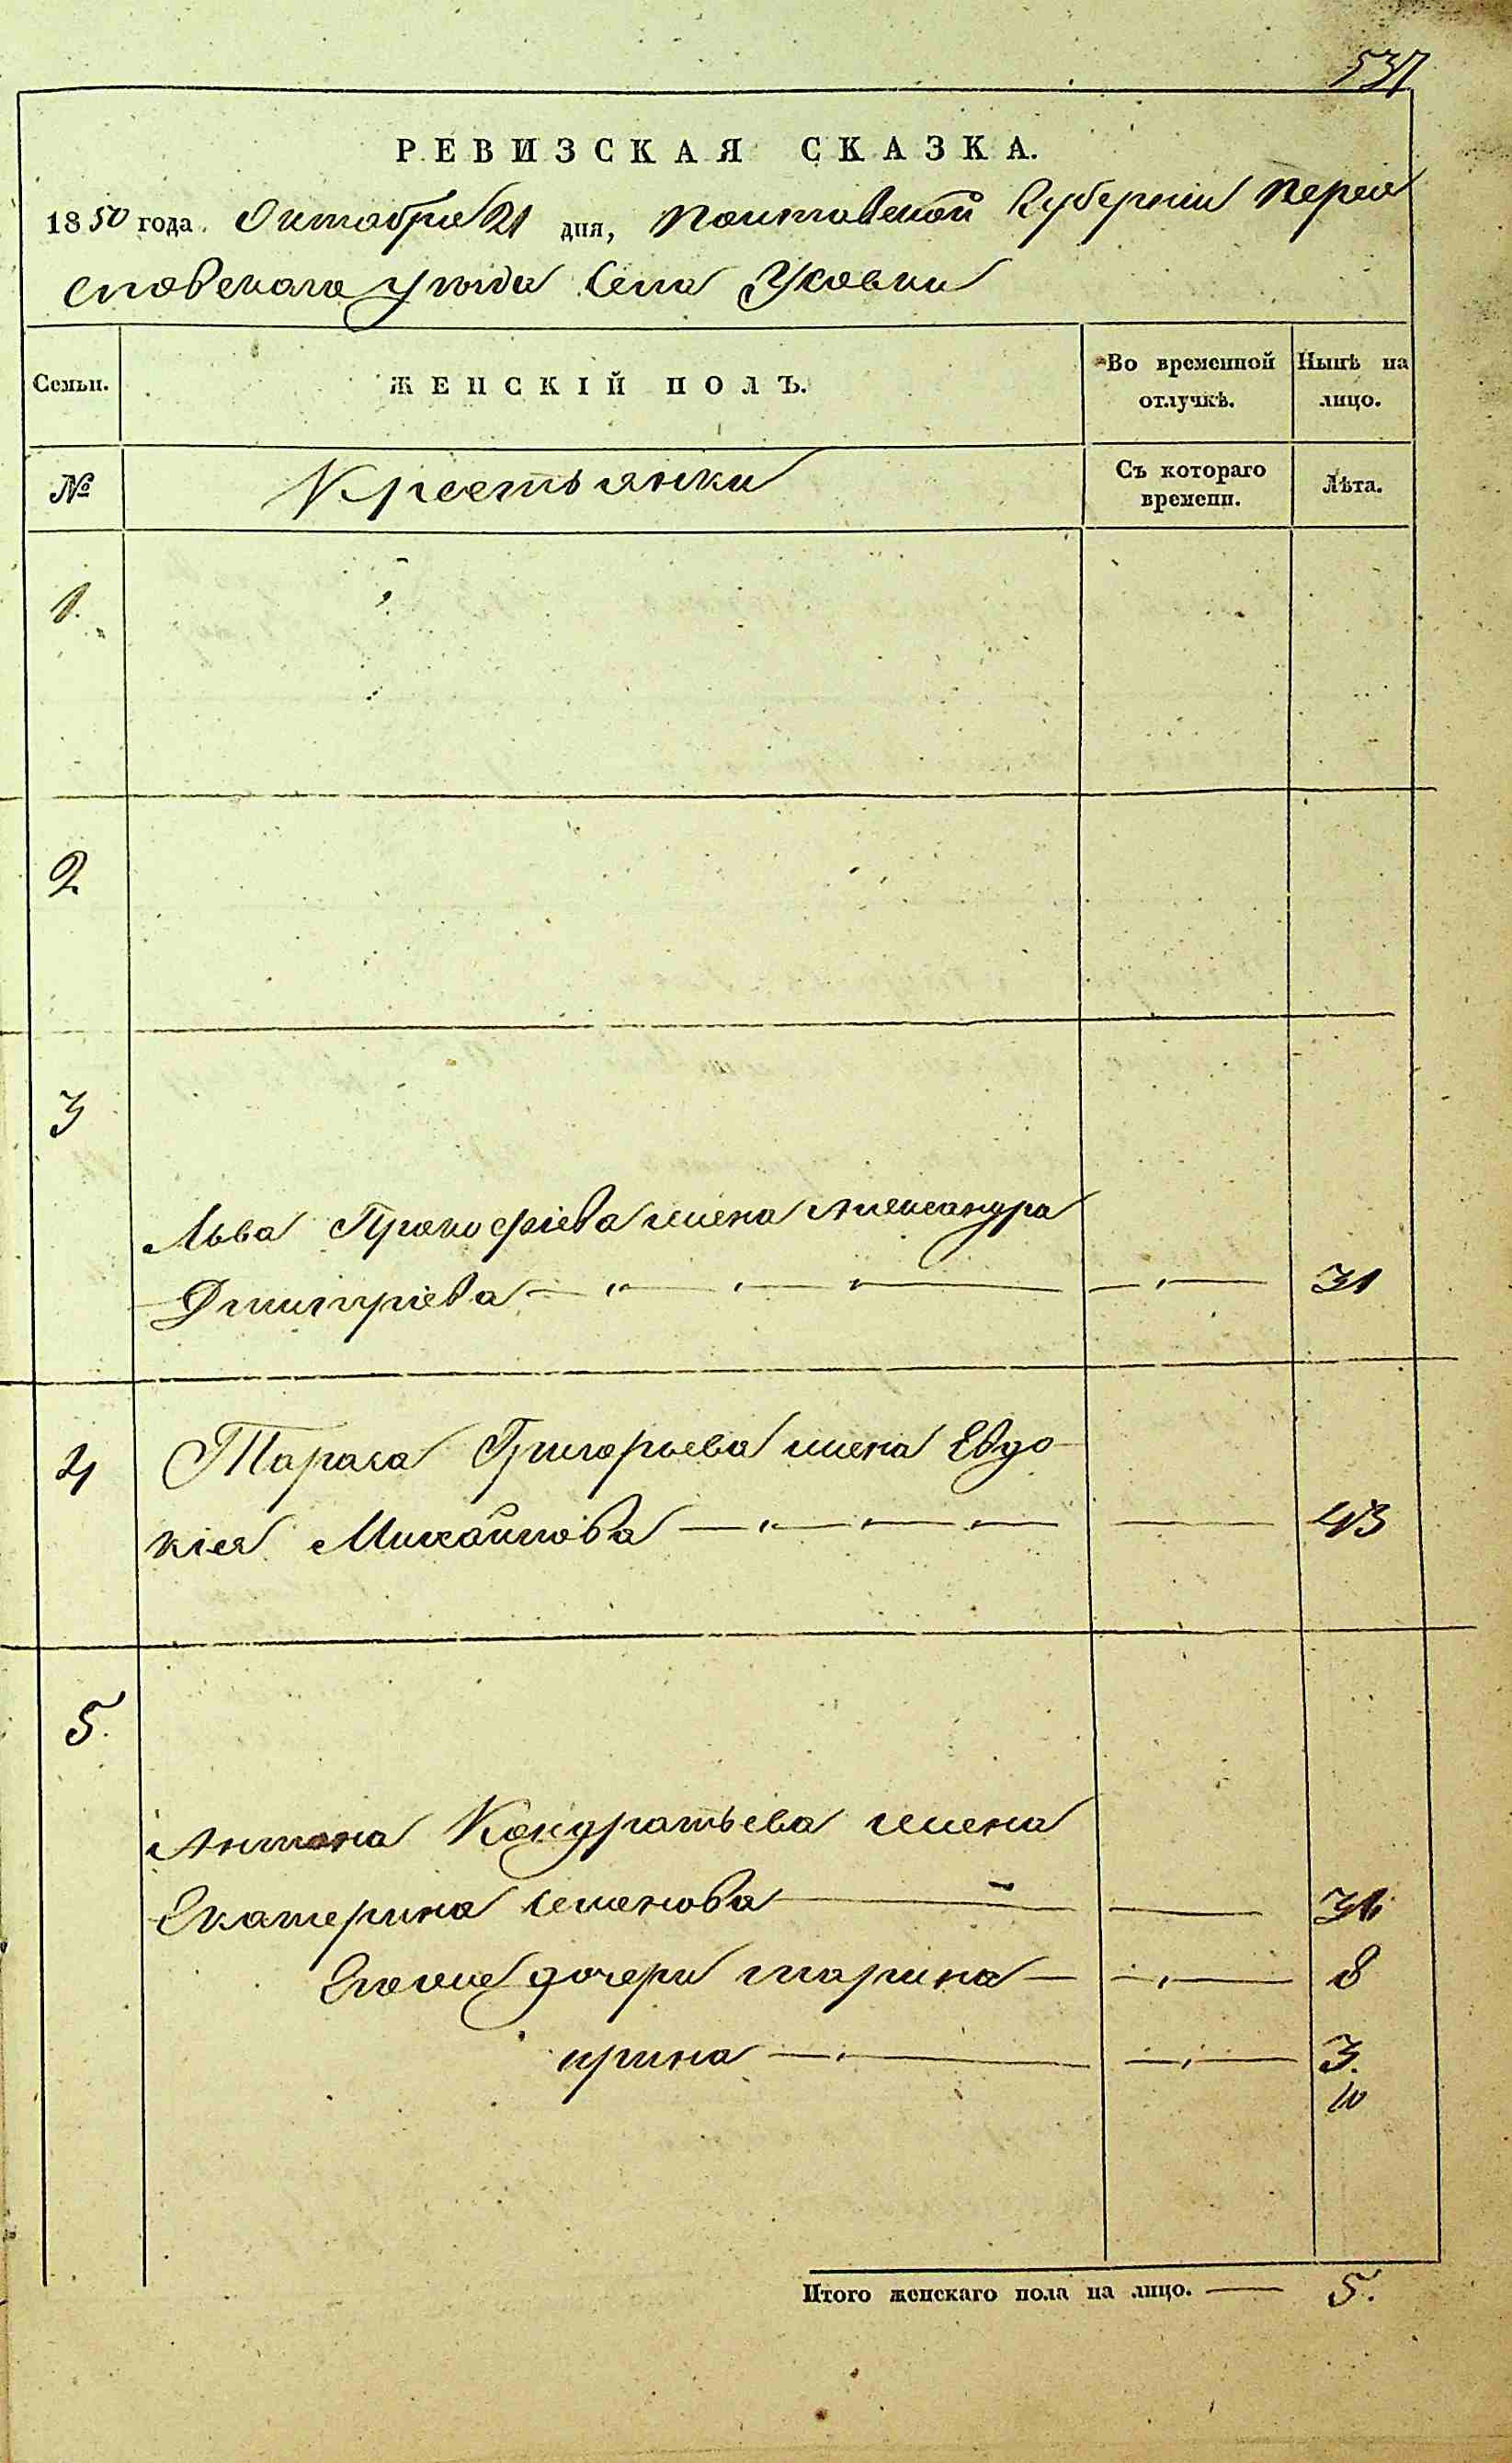 537
РЕВИЗСКАЯ СКАЗКА.
1850 года. Октября 21 дня, Полтавской Губерніи Перея
славскаго уѣзда Села Усовки
Семьи. ЖЕНСКІЙ ПОЛЪ. Во временной отлучкѣ. Нынѣ на лицо.
№ Крестьянки Съ котораго времени. Лѣта.
1.
2.
3
Льва Прокофіева жена Александра
Дмитріева — „ — „ — „ — — „ — 31
4 Тараса Григорьева жена Евдо
кія Михайлова — „ — „ — „ — — 43
5.
Антона Кондратьева жена
Екатерина Семенова — —
Егоже дочери Марина — — „ — 8
Ирина — „ — — „ — 3.
10
Итого женскаго пола на лицо. — 5.